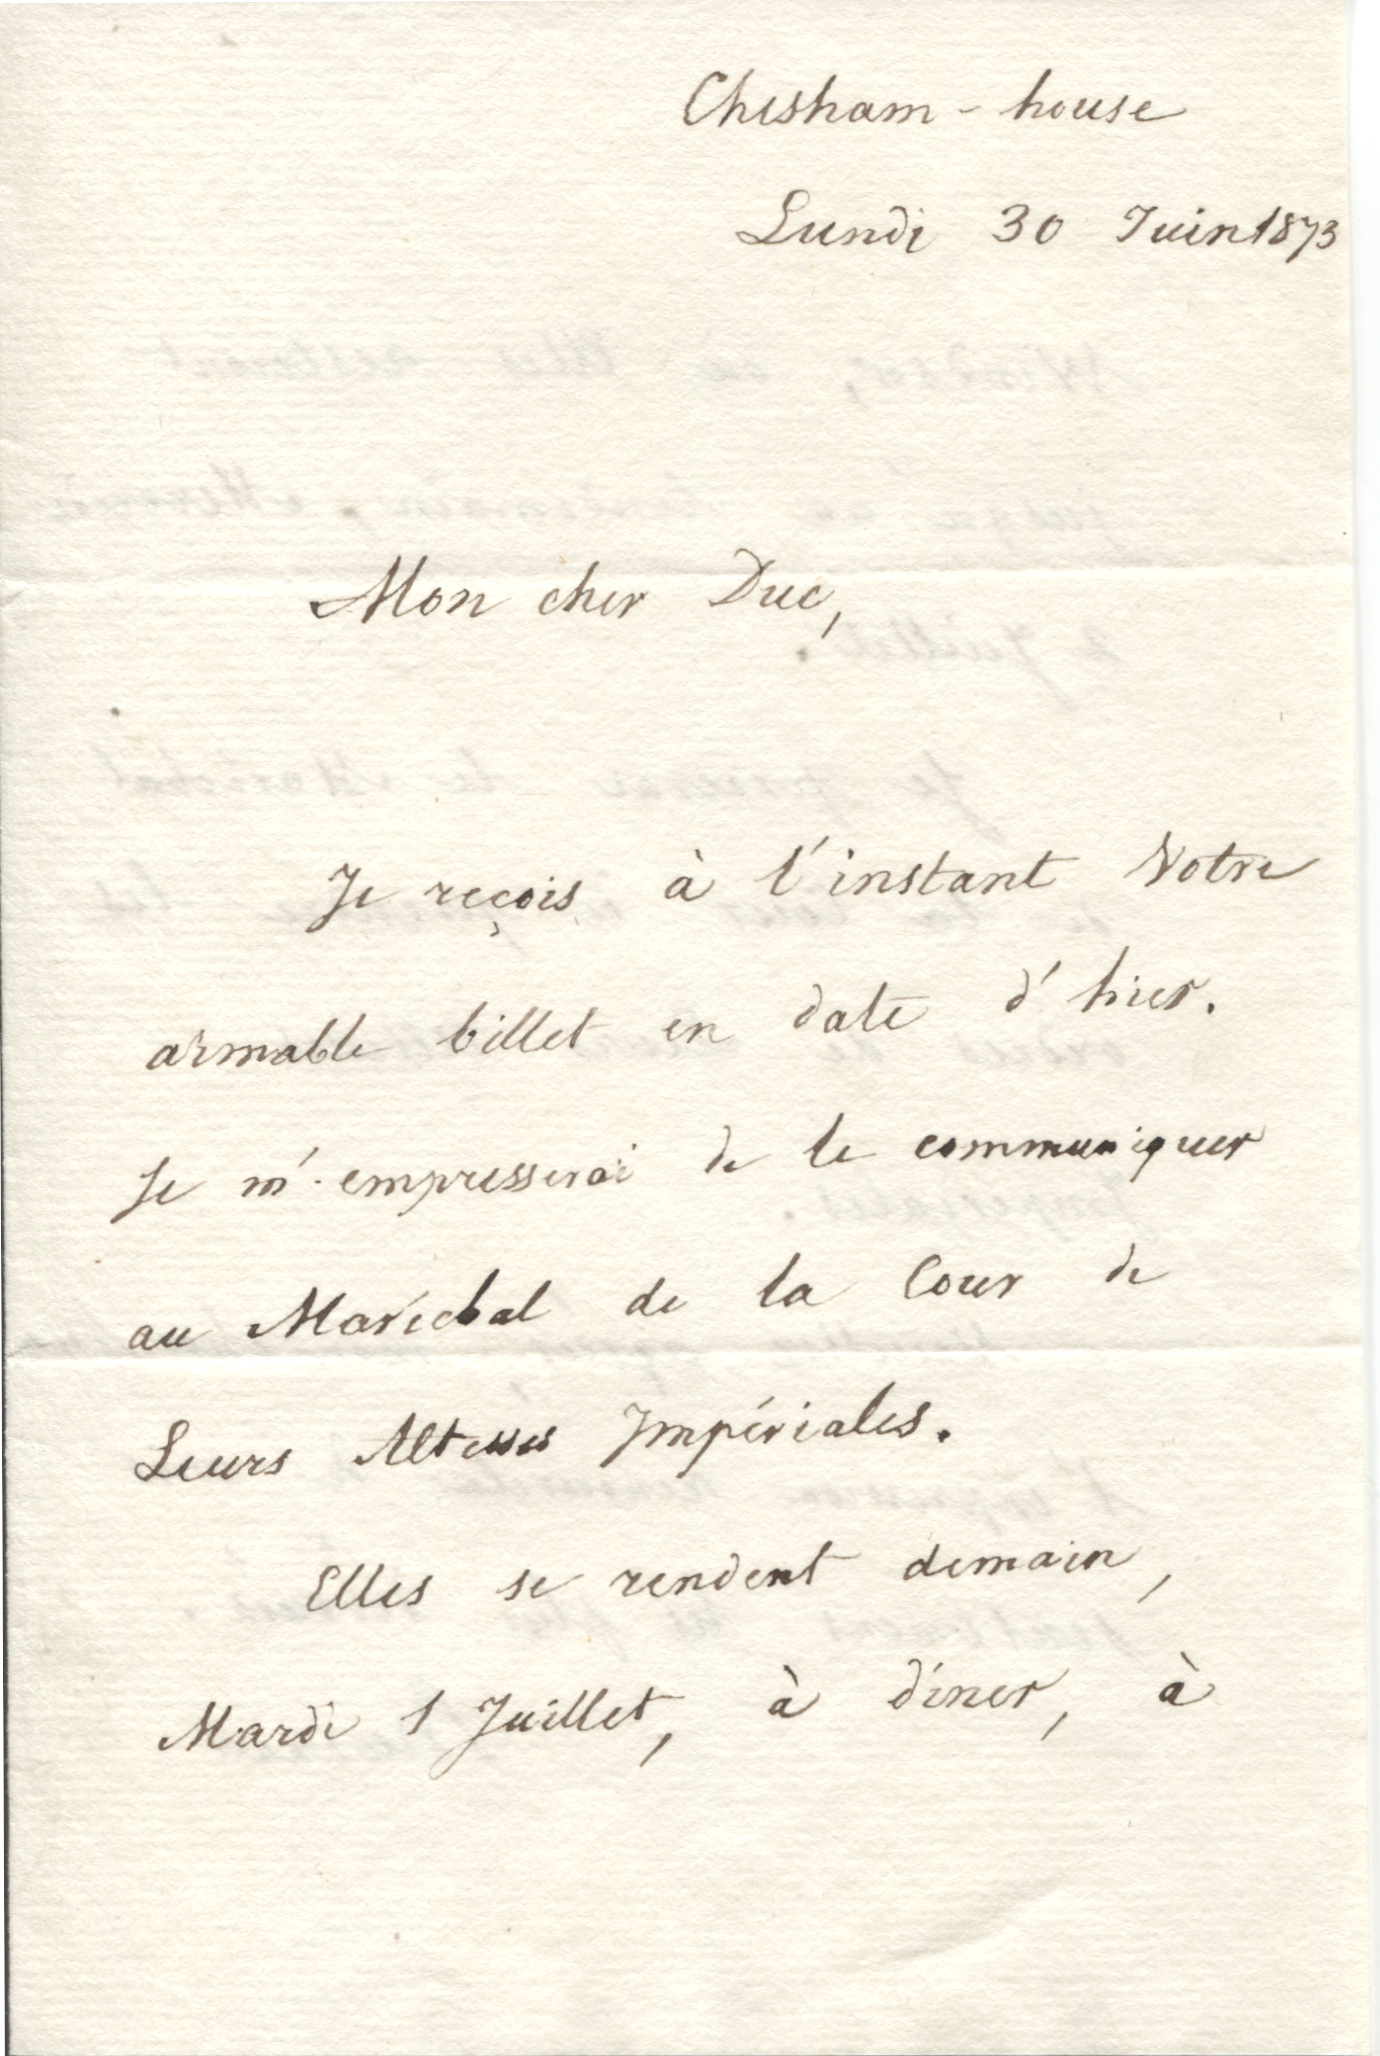 Chesham - house
Lundi 30 Juin 1873
Mon cher Duc,
Je reçois à l'instant Votre
aimable billet en date d'hier.
Je m'empresserai de le communiquer
au Maréchal de la Cour de
Leurs Altesses Impériales.
Elles se rendent demain,
Mardi 1 Juillet, à dîner, à